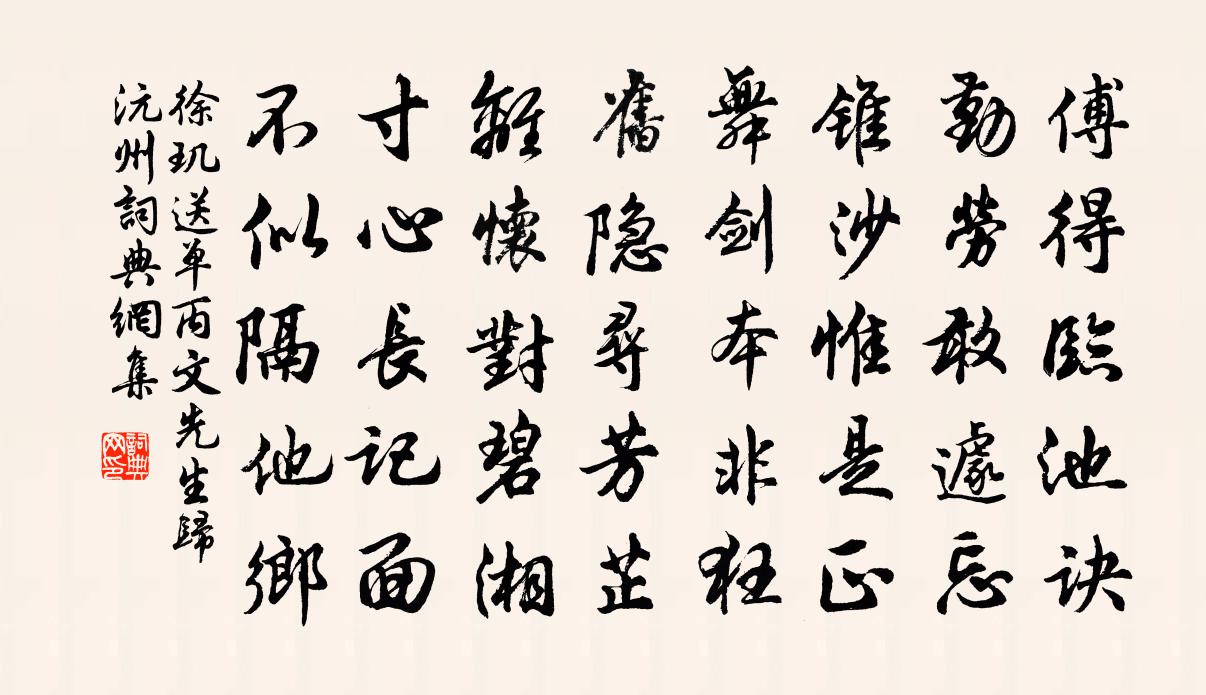 傅得臨池诀
勤勞敢遽忘
錐沙惟是正
舞劍本非狂
舊隐尋芳芷
離懷對碧湘
寸心長记面
不似隔他鄉
徐玑送单丙文先生歸
沅州詞典網集
詞典网印